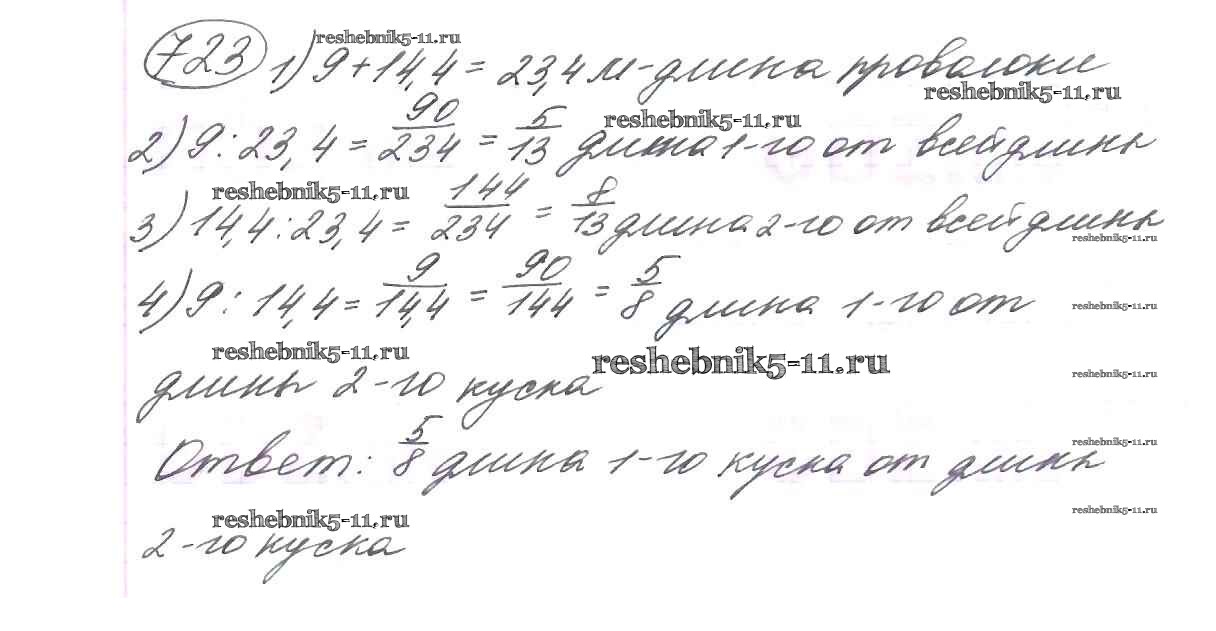 reshebnik5-11.ru
723 1) 9 + 14,4 = 23,4 м - длина проволоки
reshebnik5-11.ru
reshebnik5-11.ru
2) 9 : 23,4 = 90/234 = 5/13 длина 1-го от всей длины
reshebnik5-11.ru
3) 14,4 : 23,4 = 144/234 = 8/13 длина 2-го от всей длины
reshebnik5-11.ru
4) 9 : 14,4 = 9/14,4 = 90/144 = 5/8 длина 1-го от
reshebnik5-11.ru
reshebnik5-11.ru
reshebnik5-11.ru
reshebnik5-11.ru
длины 2-го куска
Ответ: 5/8 длина 1-го куска от длины
reshebnik5-11.ru
reshebnik5-11.ru
reshebnik5-11.ru
2-го куска